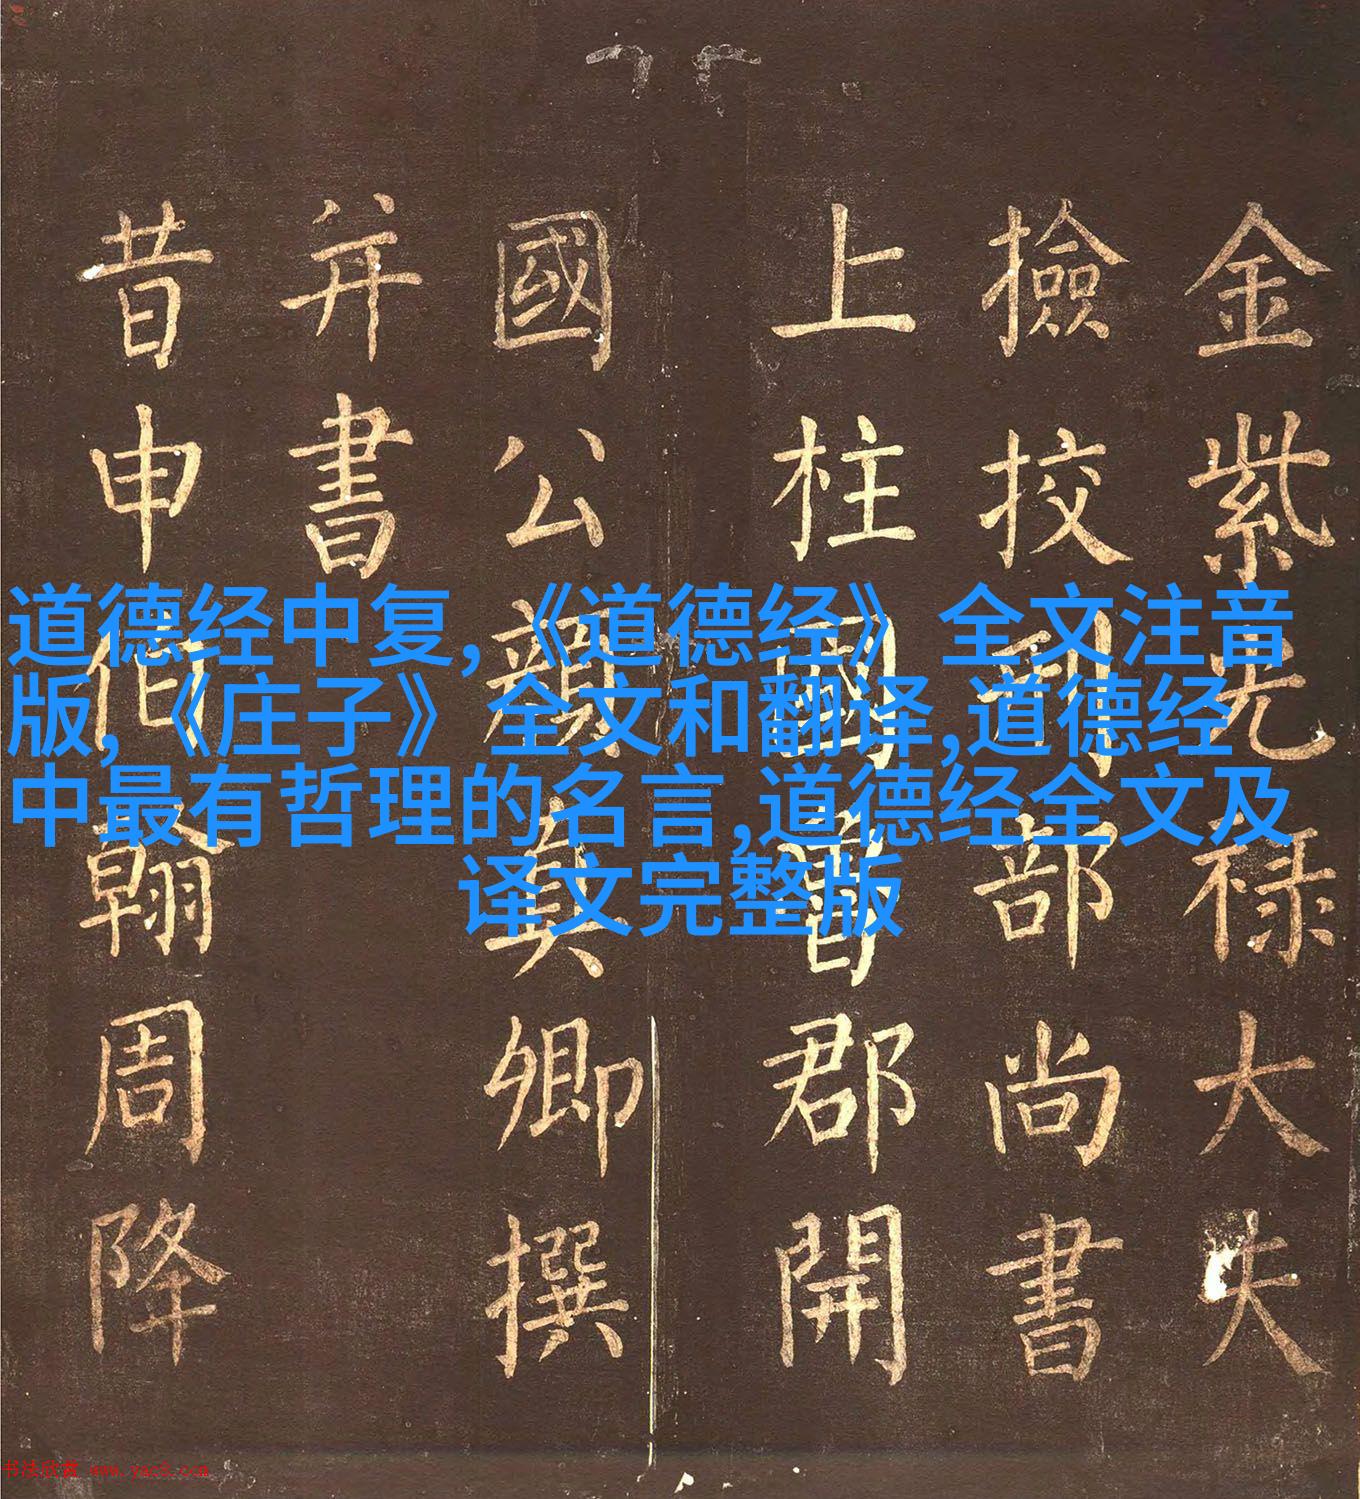 金紫光禄大夫
撿挍刑部尚書
上柱國魯郡開
國公顏真卿撰
并書
昔申伯翰周降
道德经中复,《道德经》全文注音
版,《庄子》全文和翻译,道德经
中最有哲理的名言,道德经全文及
译文完整版
书法欣赏 www.yac8.com